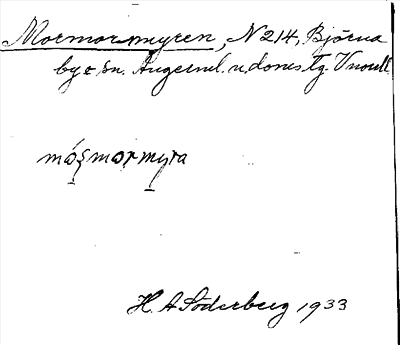 Mormormyren, N 214, Björna
by o. sn. Ångerml. n. doms. Tg. Vnorrl.
móꞩmormyra
H. A Söderberg 1933